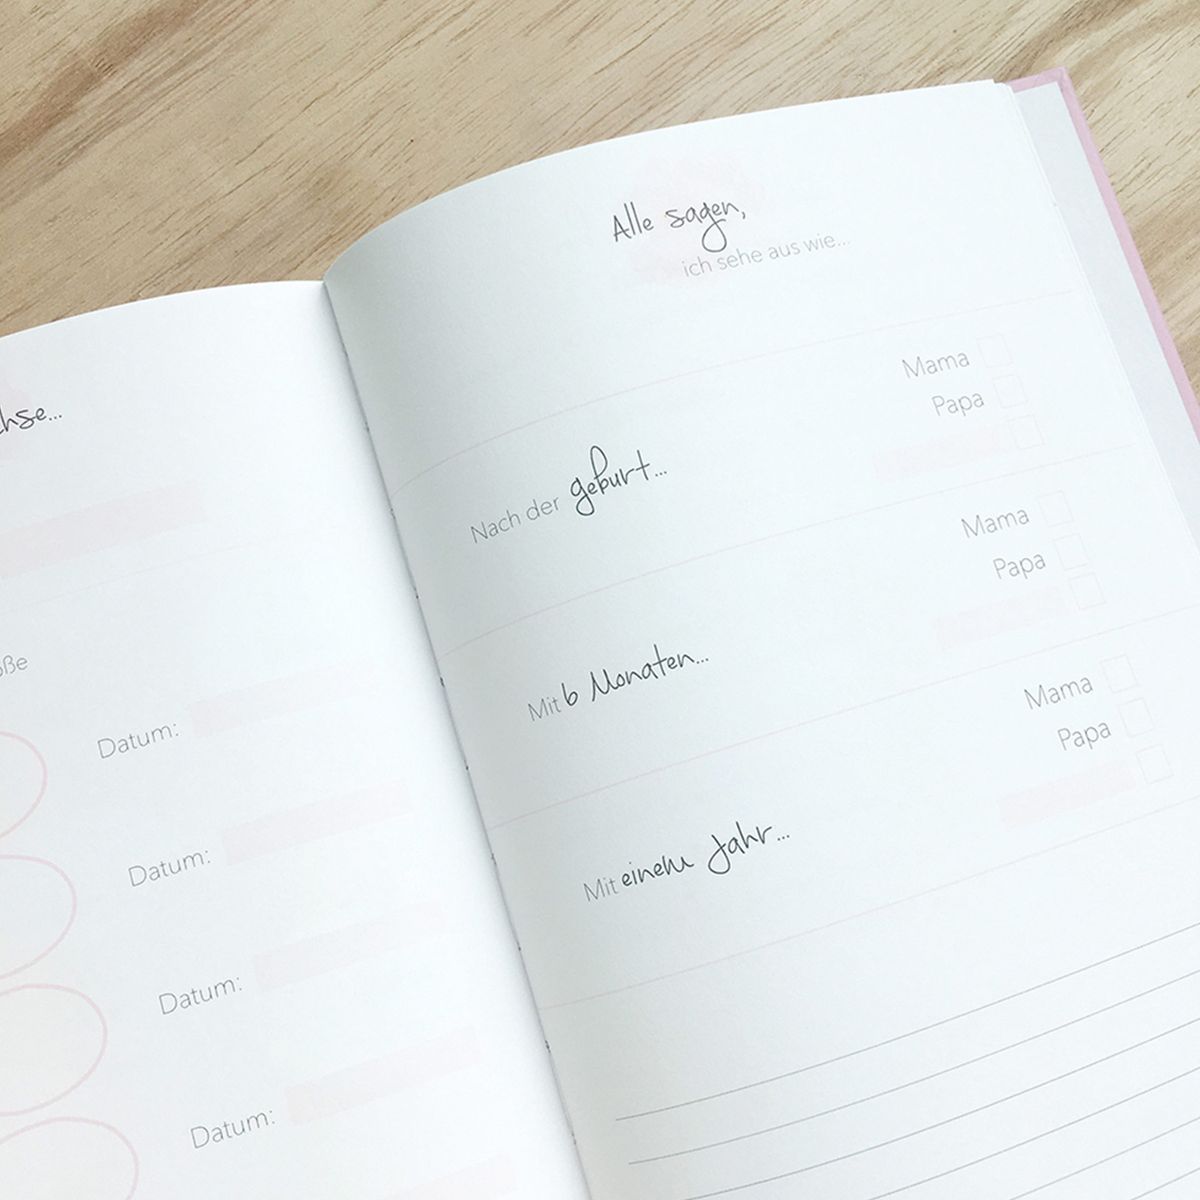 Datum:
Datum:
Datum:
Datum:
Alle sagen,
ich sehe aus wie...
Mama
Papa
Nach der geburt...
Mama
Papa
Mit 6 Monaten...
Mama
Papa
Mit einem Jahr...